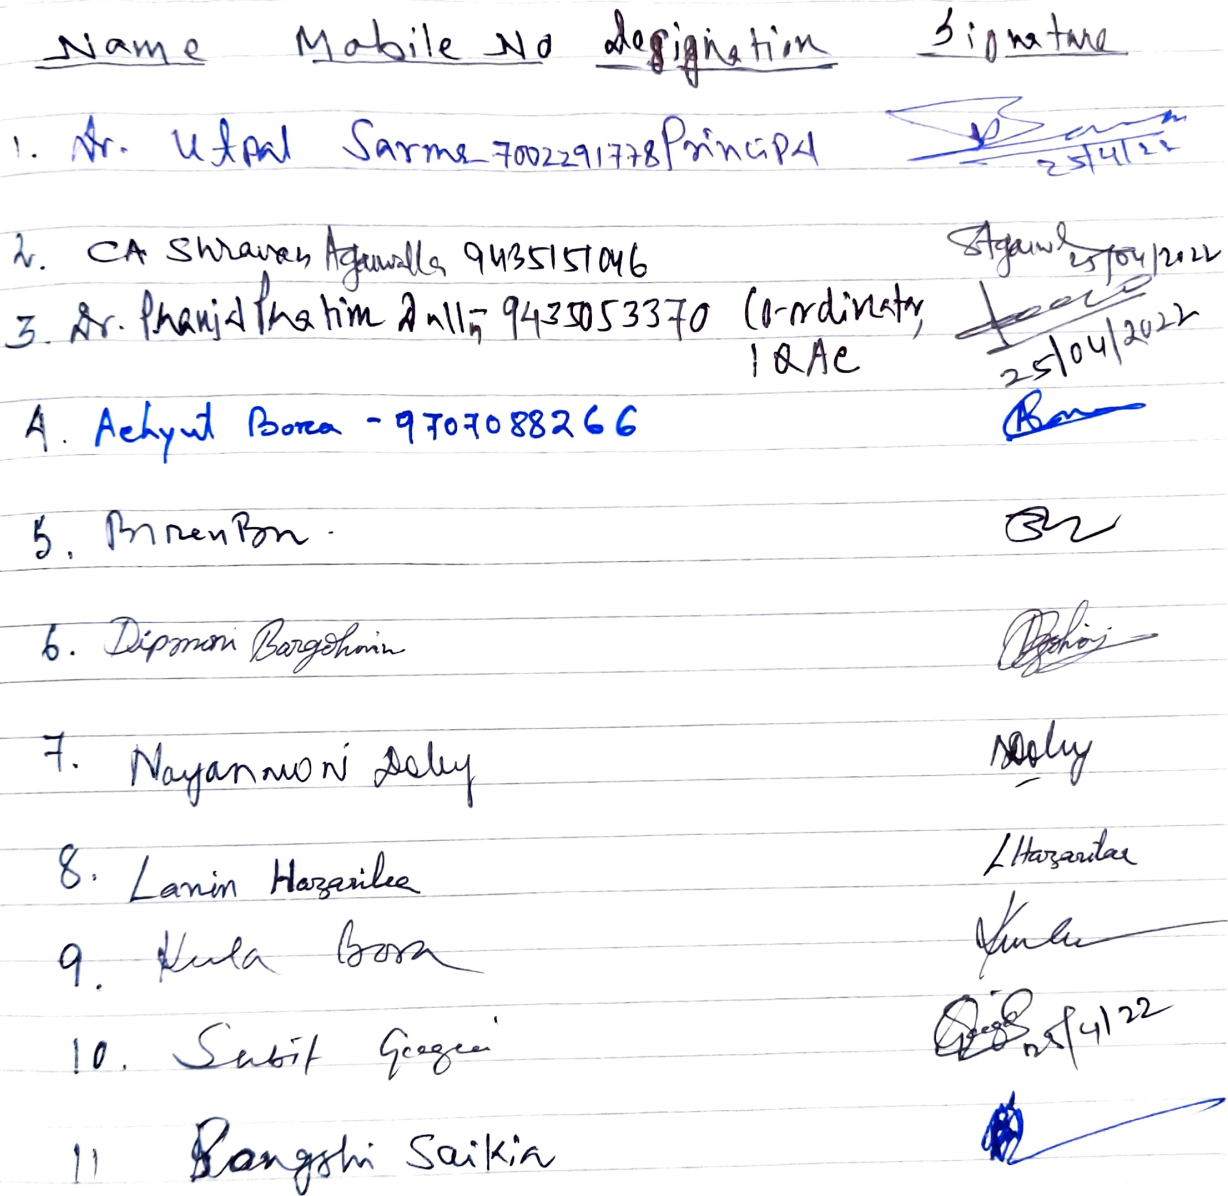 Name Mobile No Designation Signature
1. Dr. Utpal Sarma 7002291778 Principal
25/4/22
2. CA Shravan Agarwalla 9435151046 SAgarwal 25/04/2022
3. Dr. Dutta 9435053370 Co-ordinator,
IQAC 25/04/2022
4. Achyut Bora - 9707088266
5. Biren Bora
6. Dipmoni Bargohain
7. Nayanmoni Doley NDoley
8. Lanin Hazarika LHazarika
9. Kula Bora Kula
10. Subit Gogoi 25/4/22
11 Bangshi Saikia